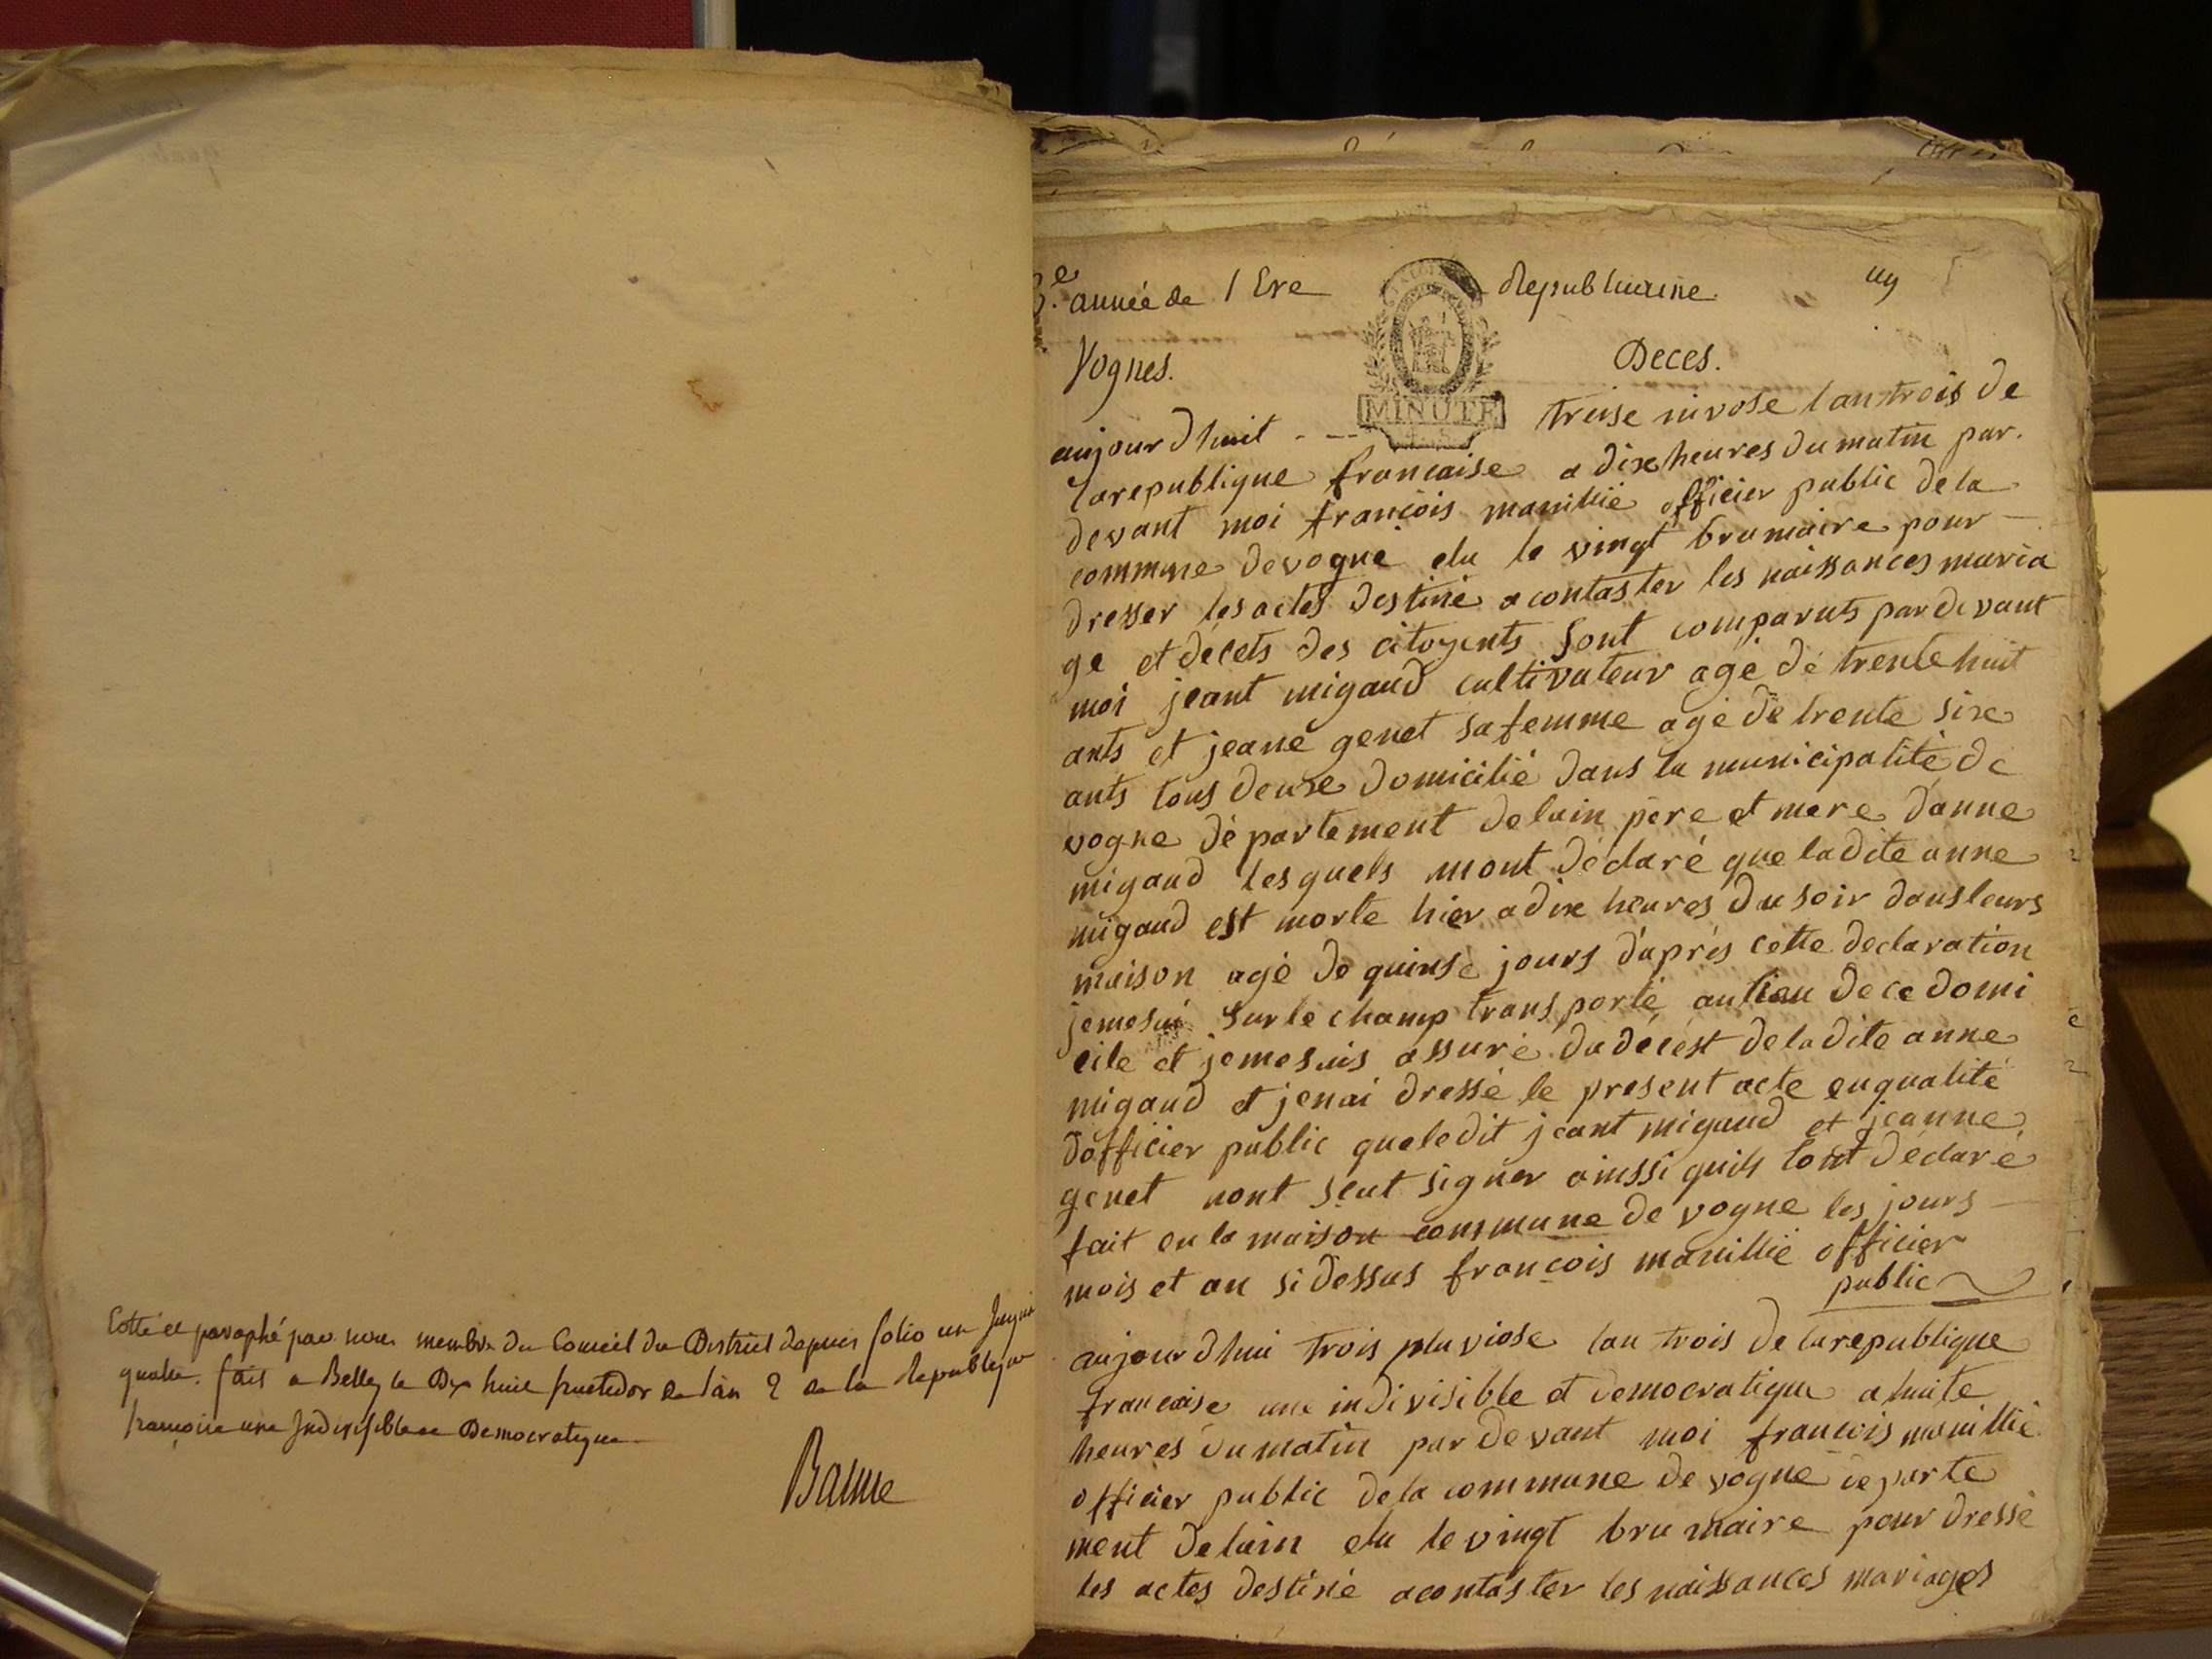 Cotté et paraphé par nous membre du Conseil du District depuis folio un Jusqua
quatre. fait a Belley le Dix huit fructidor de l'an 2 de la Republique
francoise une Indivisible et Democratique
Baume
3.e année de l Ere Republicaine. un
Vognes. Deces.
MINUTE
aujourdhuit - - treise nivose l'an trois de
la republique francaise a dix heures du matin par.
devant moi francois manillié officier public de la
commune de vogne elu le vingt brumaire pour
dresser les actes destiné a contaster les naissances maria
ge et décets des citoyents sont comparuts par devant
moi jeant migaud cultivateur agé de trente huit
ants et jeane genet sa femme agé de trente six
ants tous deuxe domicilié dans la municipalité de
vogne département de lain père et mere danne
migaud lesquels mont déclaré que ladite anne
migaud est morte hier a dix heures du soir dans leurs
maison agé de quinse jours d'après cette declaration
je me sui sur le champ transporté au lieu de ce domi
cile et je me suis assuré du décést de ladite anne
migaud et jenai dressé le present acte en qualité
dofficier public que ledit jeant migaud et jeanne
genet nont seut signer ainssi quils lont déclaré
fait en la maison commune de vogne les jours
mois et an si dessus francois manillié officier
public
aujourdhui trois pluviose lan trois de la republique
francaise une indivisible et democratique a huite
heures du matin par devant moi francois manillié
officier public de la commune de vogne departe
ment de lain elu le vingt brumaire pour dressé
les actes destiné a contaster les naissances mariages